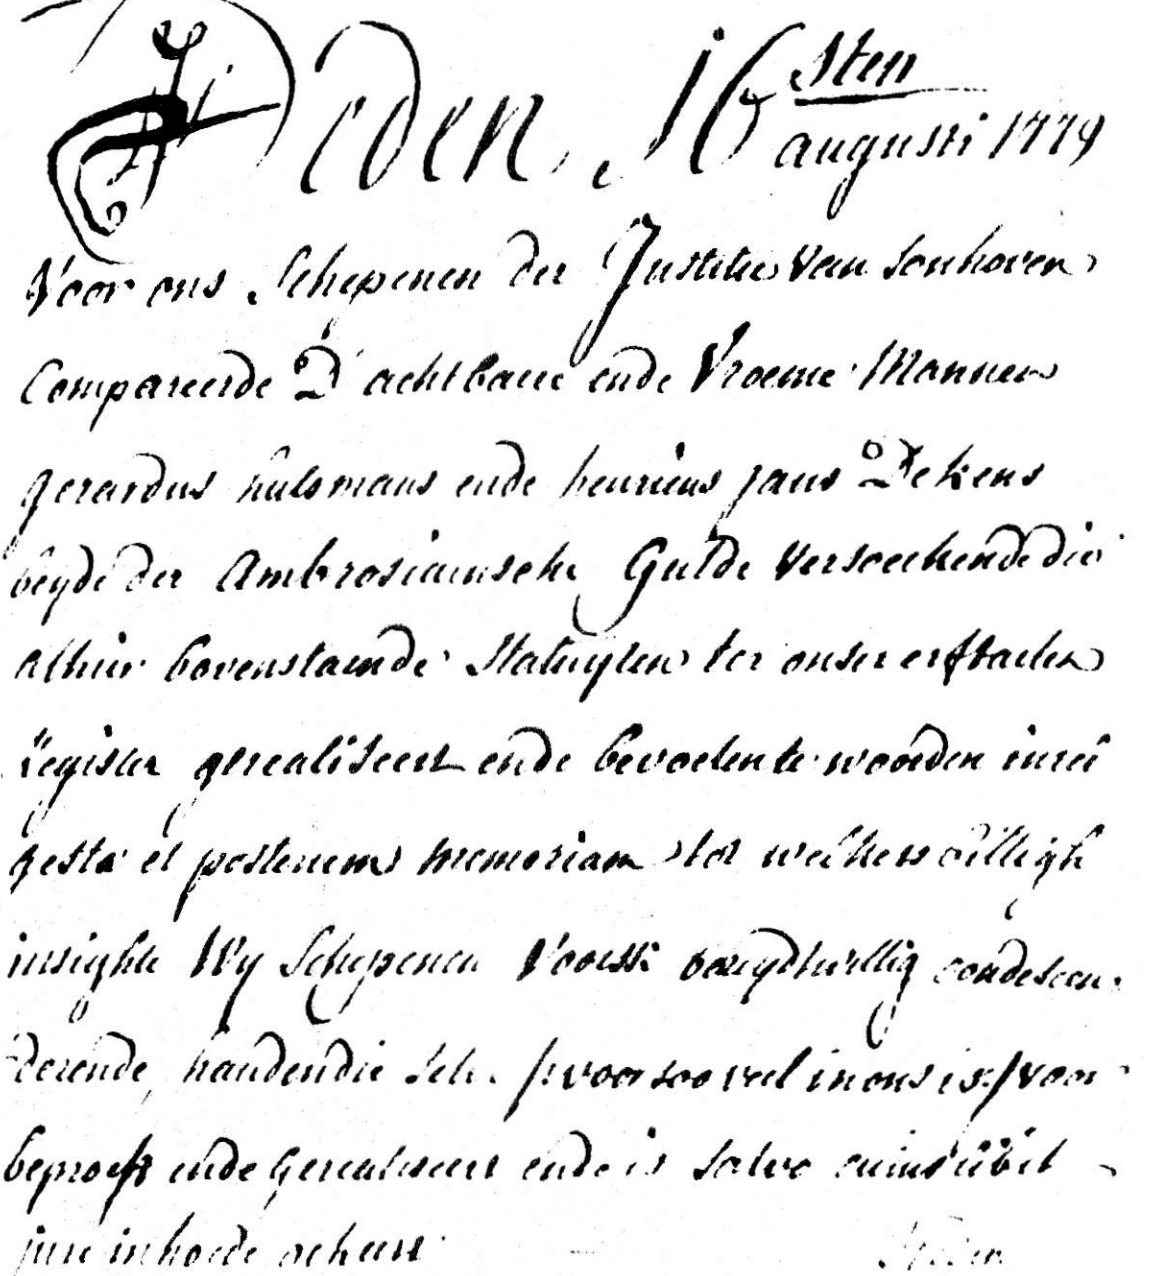 Heden 16 sten
augusti 1779
Voor ons Schepenen der Justitie van sonhoven
Compareerde D'achtbaere ende Vroeme Mannen
gerardus hulsmans ende henricus jans Dekens
beyde der Ambrosiaensche Gulde versoeckende die
alhier bovenstaende Statuyten ter onser erffbaeler
register gerealiseert ende bevoelen te woorden in rei
gesta et posterum memoriam tot welkers billigh
insighte Wy Schepenen Voorss: condescen-
derende, handen die selve voor soo veel in ons is voor
beproeft ende Gerealiseert ende is salvo cuius libet
jure in hoede gekeert